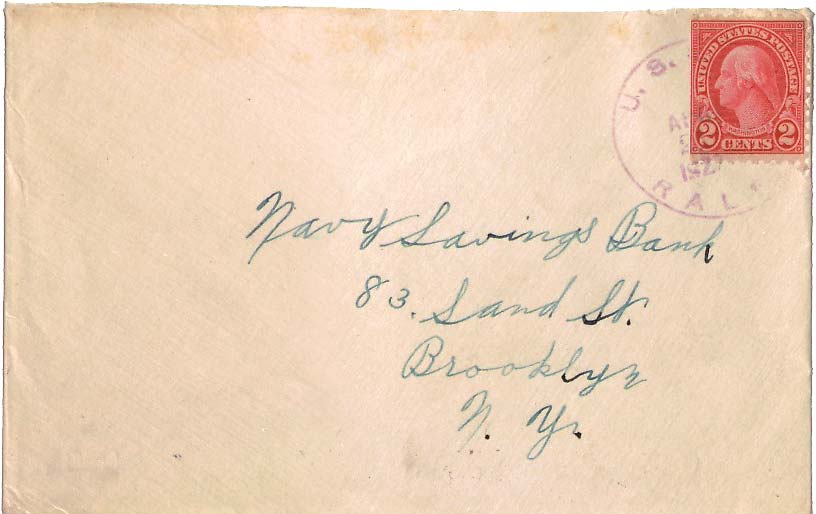 U. S.
UNITED STATES POSTAGE
WASHINGTON
2 CENTS 2
Navy Savings Bank
83. Sand St.
Brooklyn
N. Y.